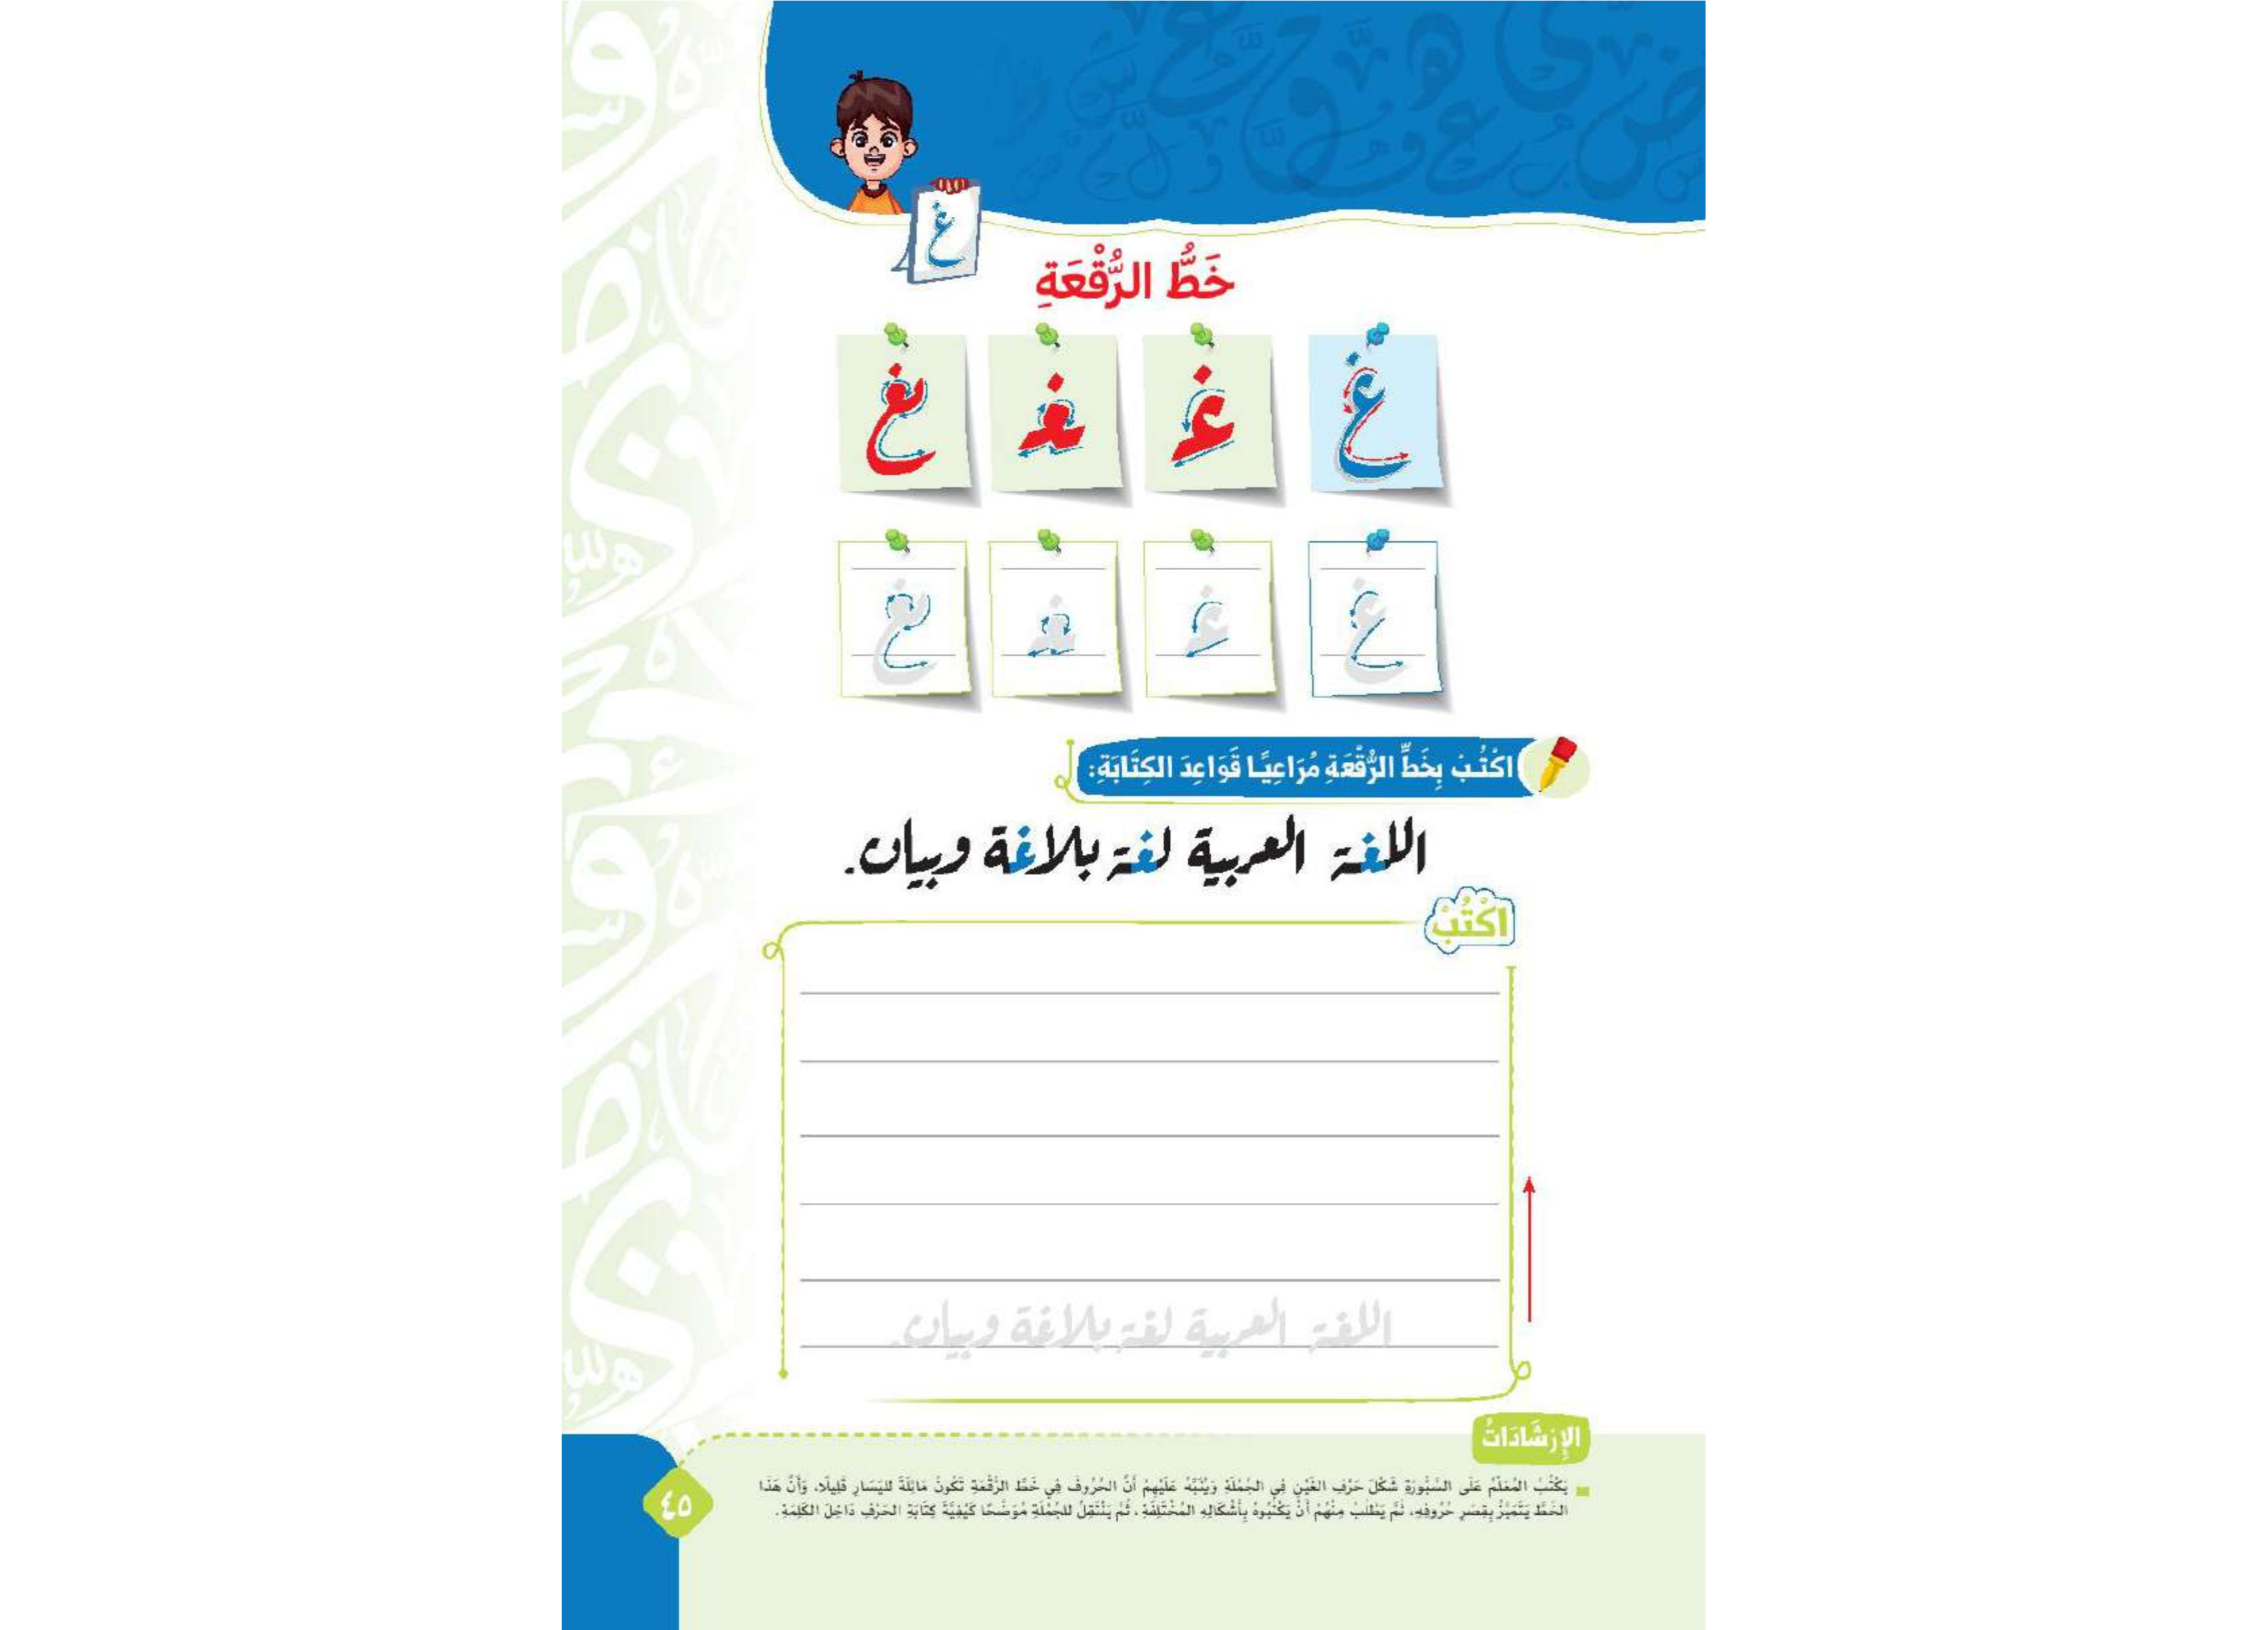 غ
خَطُّ الرُّقْعَةِ
غ غـ ـغـ ـغ
غ غـ ـغـ ـغ
اكْتُبْ بِخَطِّ الرُّقْعَةِ مُرَاعِيًا قَوَاعِدَ الكِتَابَةِ:
اللغة العربية لغة بلاغة وبيان.
اكْتُبْ
اللغة العربية لغة بلاغة وبيان.
الإِرْشَادَاتُ
يَكْتُبُ المُعَلِّمُ عَلَى السَّبُّورَةِ شَكْلَ حَرْفِ الغَيْنِ فِي الجُمْلَةِ وَيُنَبِّهُ عَلَيْهِمْ أَنَّ الحُرُوفَ فِي خَطِّ الرُّقْعَةِ تَكُونُ مَائِلَةً لليَسَارِ قَلِيلًا، وَأَنَّ هَذَا
الخَطَّ يَتَمَيَّزُ بِقِصَرِ حُرُوفِهِ، ثُمَّ يَطْلُبُ مِنْهُمْ أَنْ يَكْتُبُوهُ بِأَشْكَالِهِ المُخْتَلِفَةِ، ثُمَّ يَنْتَقِلُ للجُمْلَةِ مُوَضِّحًا كَيْفِيَّةَ كِتَابَةِ الحَرْفِ دَاخِلَ الكَلِمَةِ.
٤٥